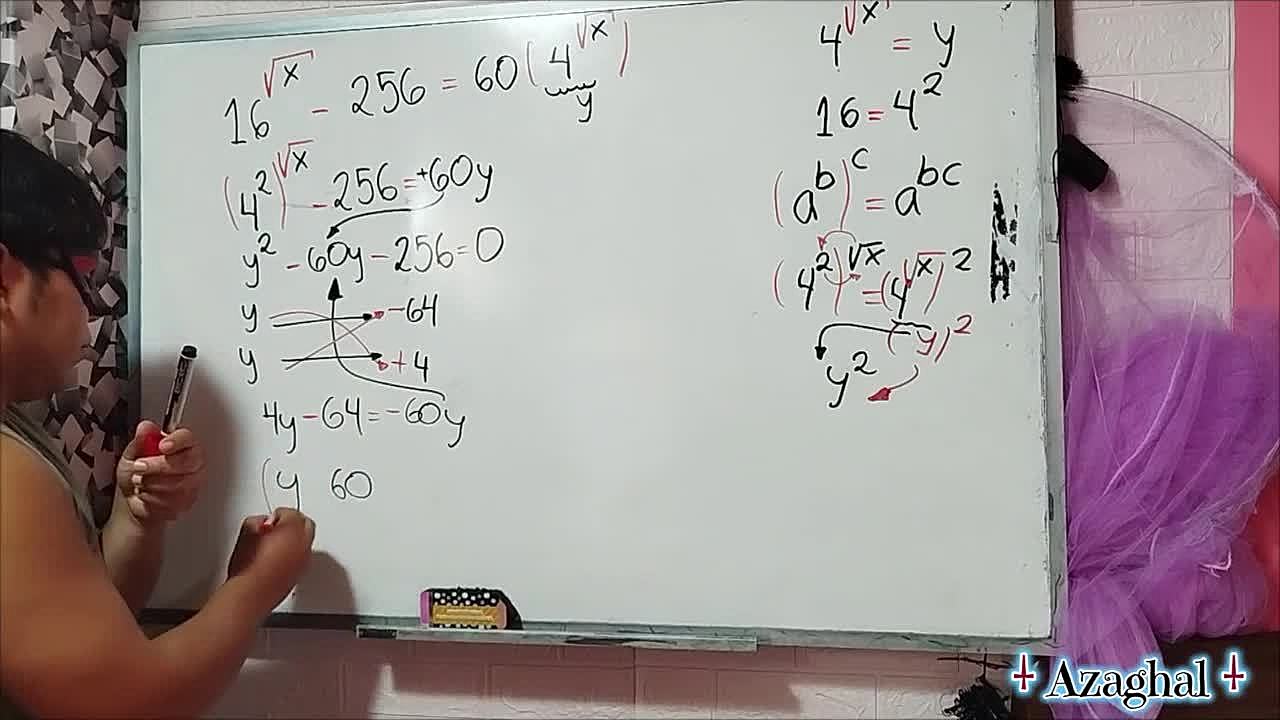 16^√x - 256 = 60(4^√x)
y
(4^2)^√x - 256 = +60y
y^2 - 60y - 256 = 0
y -64
y +4
4y - 64 = -60y
(y 60
4^√x = y
16 = 4^2
(a^b)^c = a^bc
(4^2)^√x = (4^√x)^2
(y)^2
y^2
Azaghal